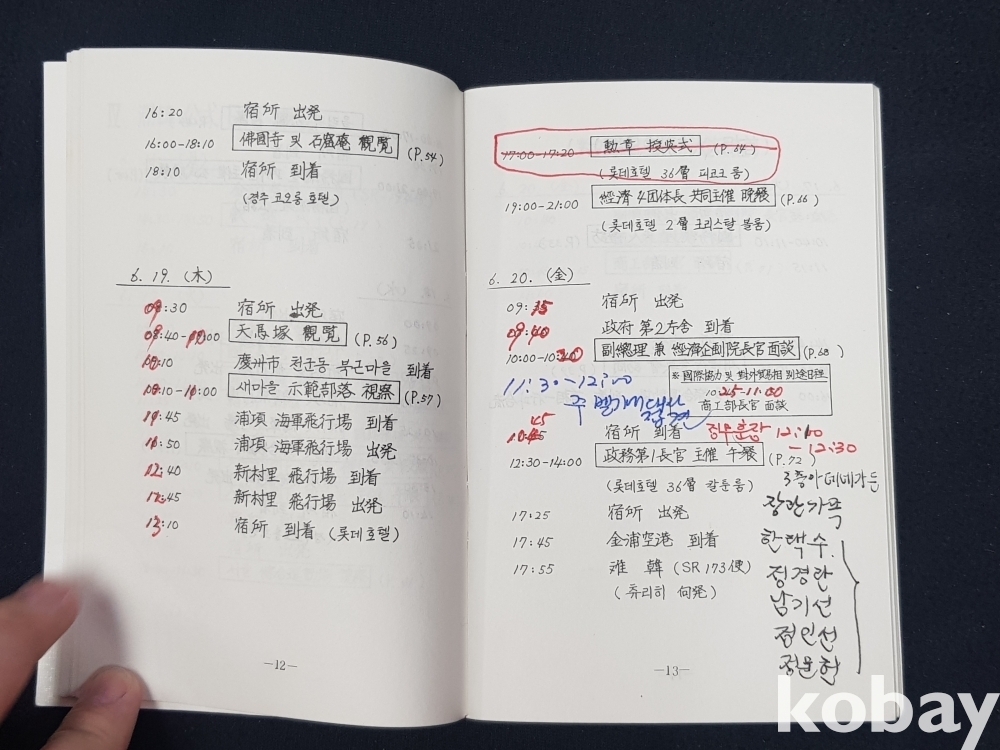 16:20 宿所 出発
16:00-18:10 佛國寺 및 石窟庵 觀覧 (P.54)
18:10 宿所 到着
(경주 코오롱 호텔)
6. 19. (木)
:30 宿所 出発
:40- :00 天馬塚 觀覧 (P.56)
:10 慶州市 천군동 부근마을 到着
:10- :00 새마을 示範部落 視察 (P.57)
:45 浦項 海軍飛行場 到着
:50 浦項 海軍飛行場 出発
12:40 新村里 飛行場 到着
:45 新村里 飛行場 出発
13:10 宿所 到着 (롯데호텔)
—12—
17:00-17:20 勳章 授與式 (P.64)
(롯데호텔 36層 피코크 룸)
19:00-21:00 經濟 4団体長 共同主催 晩餐 (P.66)
(롯데호텔 2層 크리스탈 볼룸)
6. 20. (金)
09:35 宿所 出発
09:40 政府 第2청舎 到着
10:00-10: 副總理 兼 經濟企劃院長官 面談 (P.68)
※ 國際協力 및 對外貿易相 別途日程
10:25-11:00
商工部長官 面談
11:30-12:00
주 대사
접견
45
宿所 到着 12:10
-12:30
12:30-14:00 政務第1長官 主催 午餐 (P.72)
(롯데호텔 36層 룸)
3층 아테네가든
장관가족
17:25 宿所 出発
17:45 金浦空港 到着
한택수
17:55 離 韓 (SR 173便)
정경란
(쮸리히 向発)
남기선
정인선
정문헌
—13—
kobay